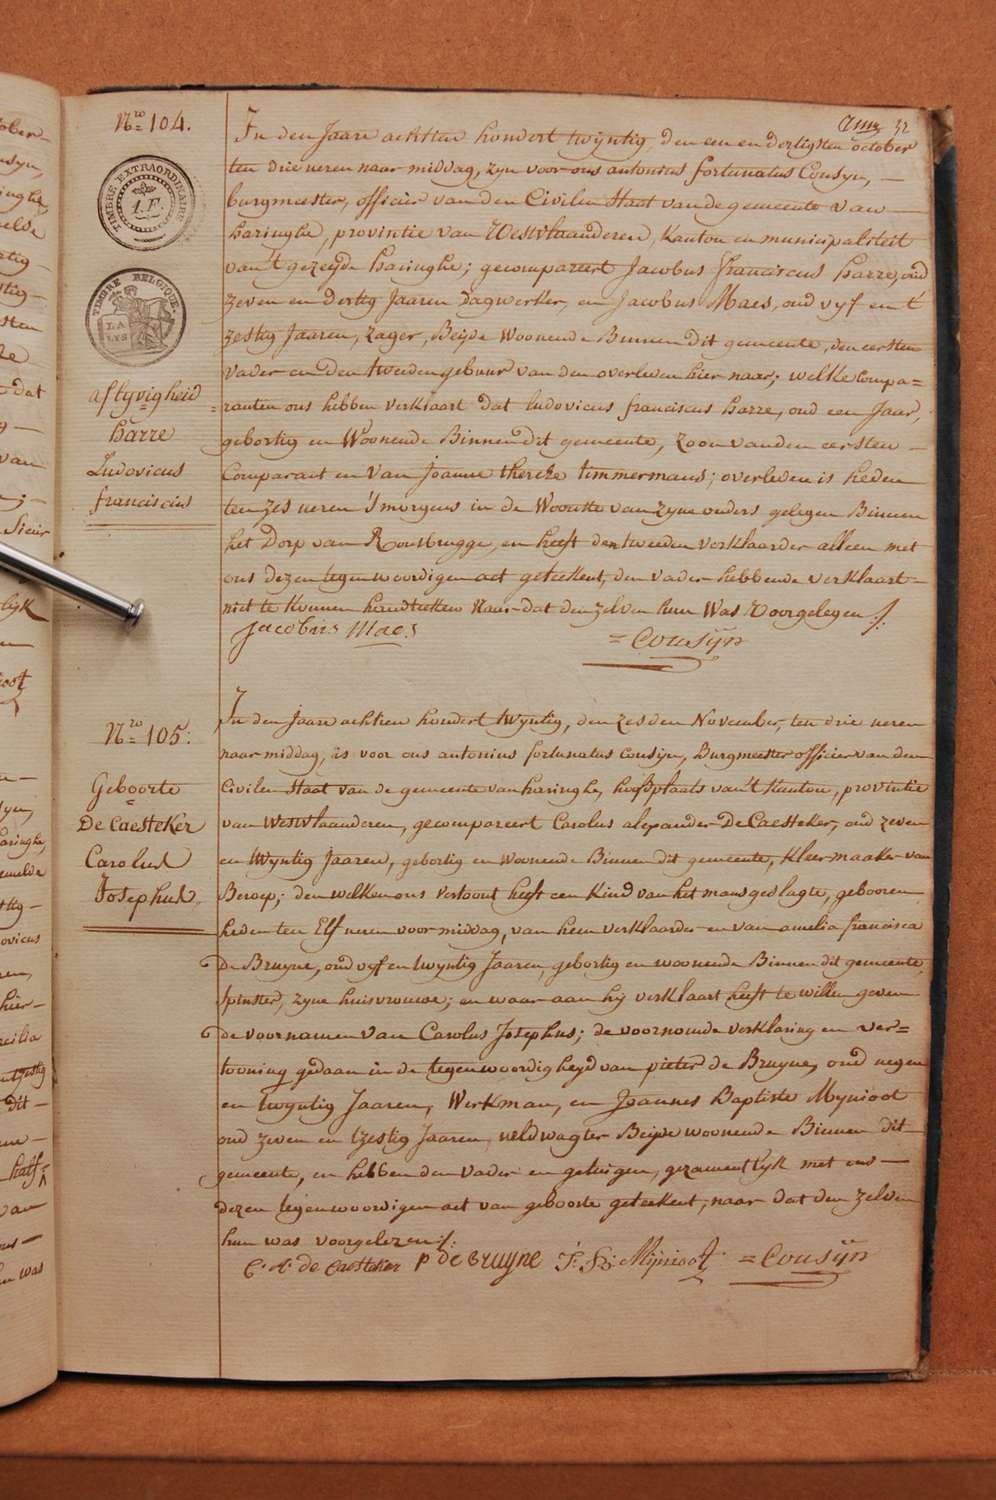 Nro 104.
TIMBRE EXTRAORDINAIRE
1.F.
TIMBRE BELGIQUE.
LA
LYS
aflyvigheid
harre
Ludovicus
franciscus
32
In den Jaare achtien hondert twyntig, den een en dertigsten october
ten drie uren naar middag, zyn voor ons antonius fortunatus Cousyn,
burgmeester, officier van den Civilen Staat van de gemeente van
haringhe, provintie van Westvlaanderen, Kanton en municipaliteit
van 't gezeijde haringhe; gecompareert Jacobus franciscus harre, oud
zeven en dertig Jaaren dagwerker, en Jacobus Maes, oud vyf en t'
zestig Jaaren, zager, Beijde Woonende Binnen dit gemeente, den eersten
vader en den tweeden gebuur van den overleden hier naar; welke compa=
=ranten ons hebben verklaart dat ludovicus franciscus harre, oud een Jaar,
gebortig en Woonende Binnen dit gemeente, zoon van den eersten
Comparant en van joanne therese timmermans; overleden is heden
ten zes uren 's morgens in de Woonste van zyne ouders gelegen Binnen
het Dorp van Rousbrugge, en heeft den tweeden verklaarder alleen met
ons dezen tegenwoordigen act geteekent, den vader hebbende verklaart
niet te konnen handteeken Naar dat den zelven hun Was Voorgelezen ./.
Jacobus Maes
= Cousijn
Nro 105:
Geboorte
De Caesteker
Carolus
Josephus
In den jaare achtien hondert twyntig, den zesden November, ten drie uren
naar middag, is voor ons antonius fortunatus Cousyn, Burgmeester officier van den
Civilen Staat van de gemeente van haringhe, hoofsplaats van 't Kanton, provintie
van westvlaanderen, gecompareert Carolus alexander De Caesteker, oud zeven
en twyntig Jaaren, gebortig en woonende Binnen dit gemeente, Kleermaaker van
Beroep; den welken ons vertoont heeft een Kind van het mans geslagte, gebooren
heden ten Elf uren voor middag, van hem verklaarder en van amelia francisca
De Bruyne, oud vyf en twyntig Jaaren, gebortig en woonende Binnen dit gemeente,
spinster, zyne huisvrouwe; en waar aan hy verklaart heeft te willen geven
de voornamen van Carolus Josephus; de voornoemde verklaring en ver=
tooning gedaan in de tegenwoordigheyd van pieter de Bruyne, oud negen
en twyntig Jaaren, Werkman, en Joannes Baptiste Mynioot
oud zeven en tzestig Jaaren, veldwagter Beijde woonende Binnen dit
gemeente, en hebben den vader en getuigen, gezamentlyk met ons
dezen tegenwoordigen act van geboorte geteekent, naar dat den zelven
hun was voorgelezen ./.
C. A. de Caesteker P de Bruyne J: B: Mijnioot = Cousijn